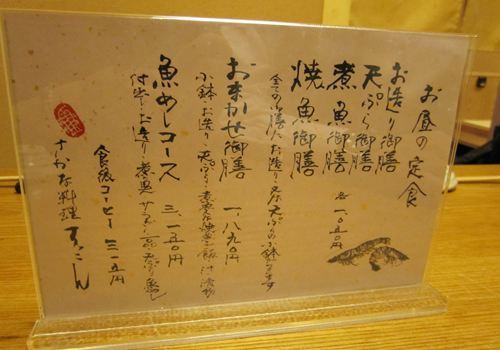 お昼の定食
お造り御膳
天ぷら御膳
煮魚御膳
焼魚御膳
各 一、〇五〇円
全ての御膳にお造り又は天ぷらの小鉢付きます
おまかせ御膳 一、八九〇円
小鉢 お造り 天ぷら 煮魚又は焼魚 ご飯 汁 漬物
魚めしコース 三、一五〇円
付出し お造り 煮魚 サラダ 一品 天ぷら 魚めし
食後コーヒー 三一五円
さかな料理